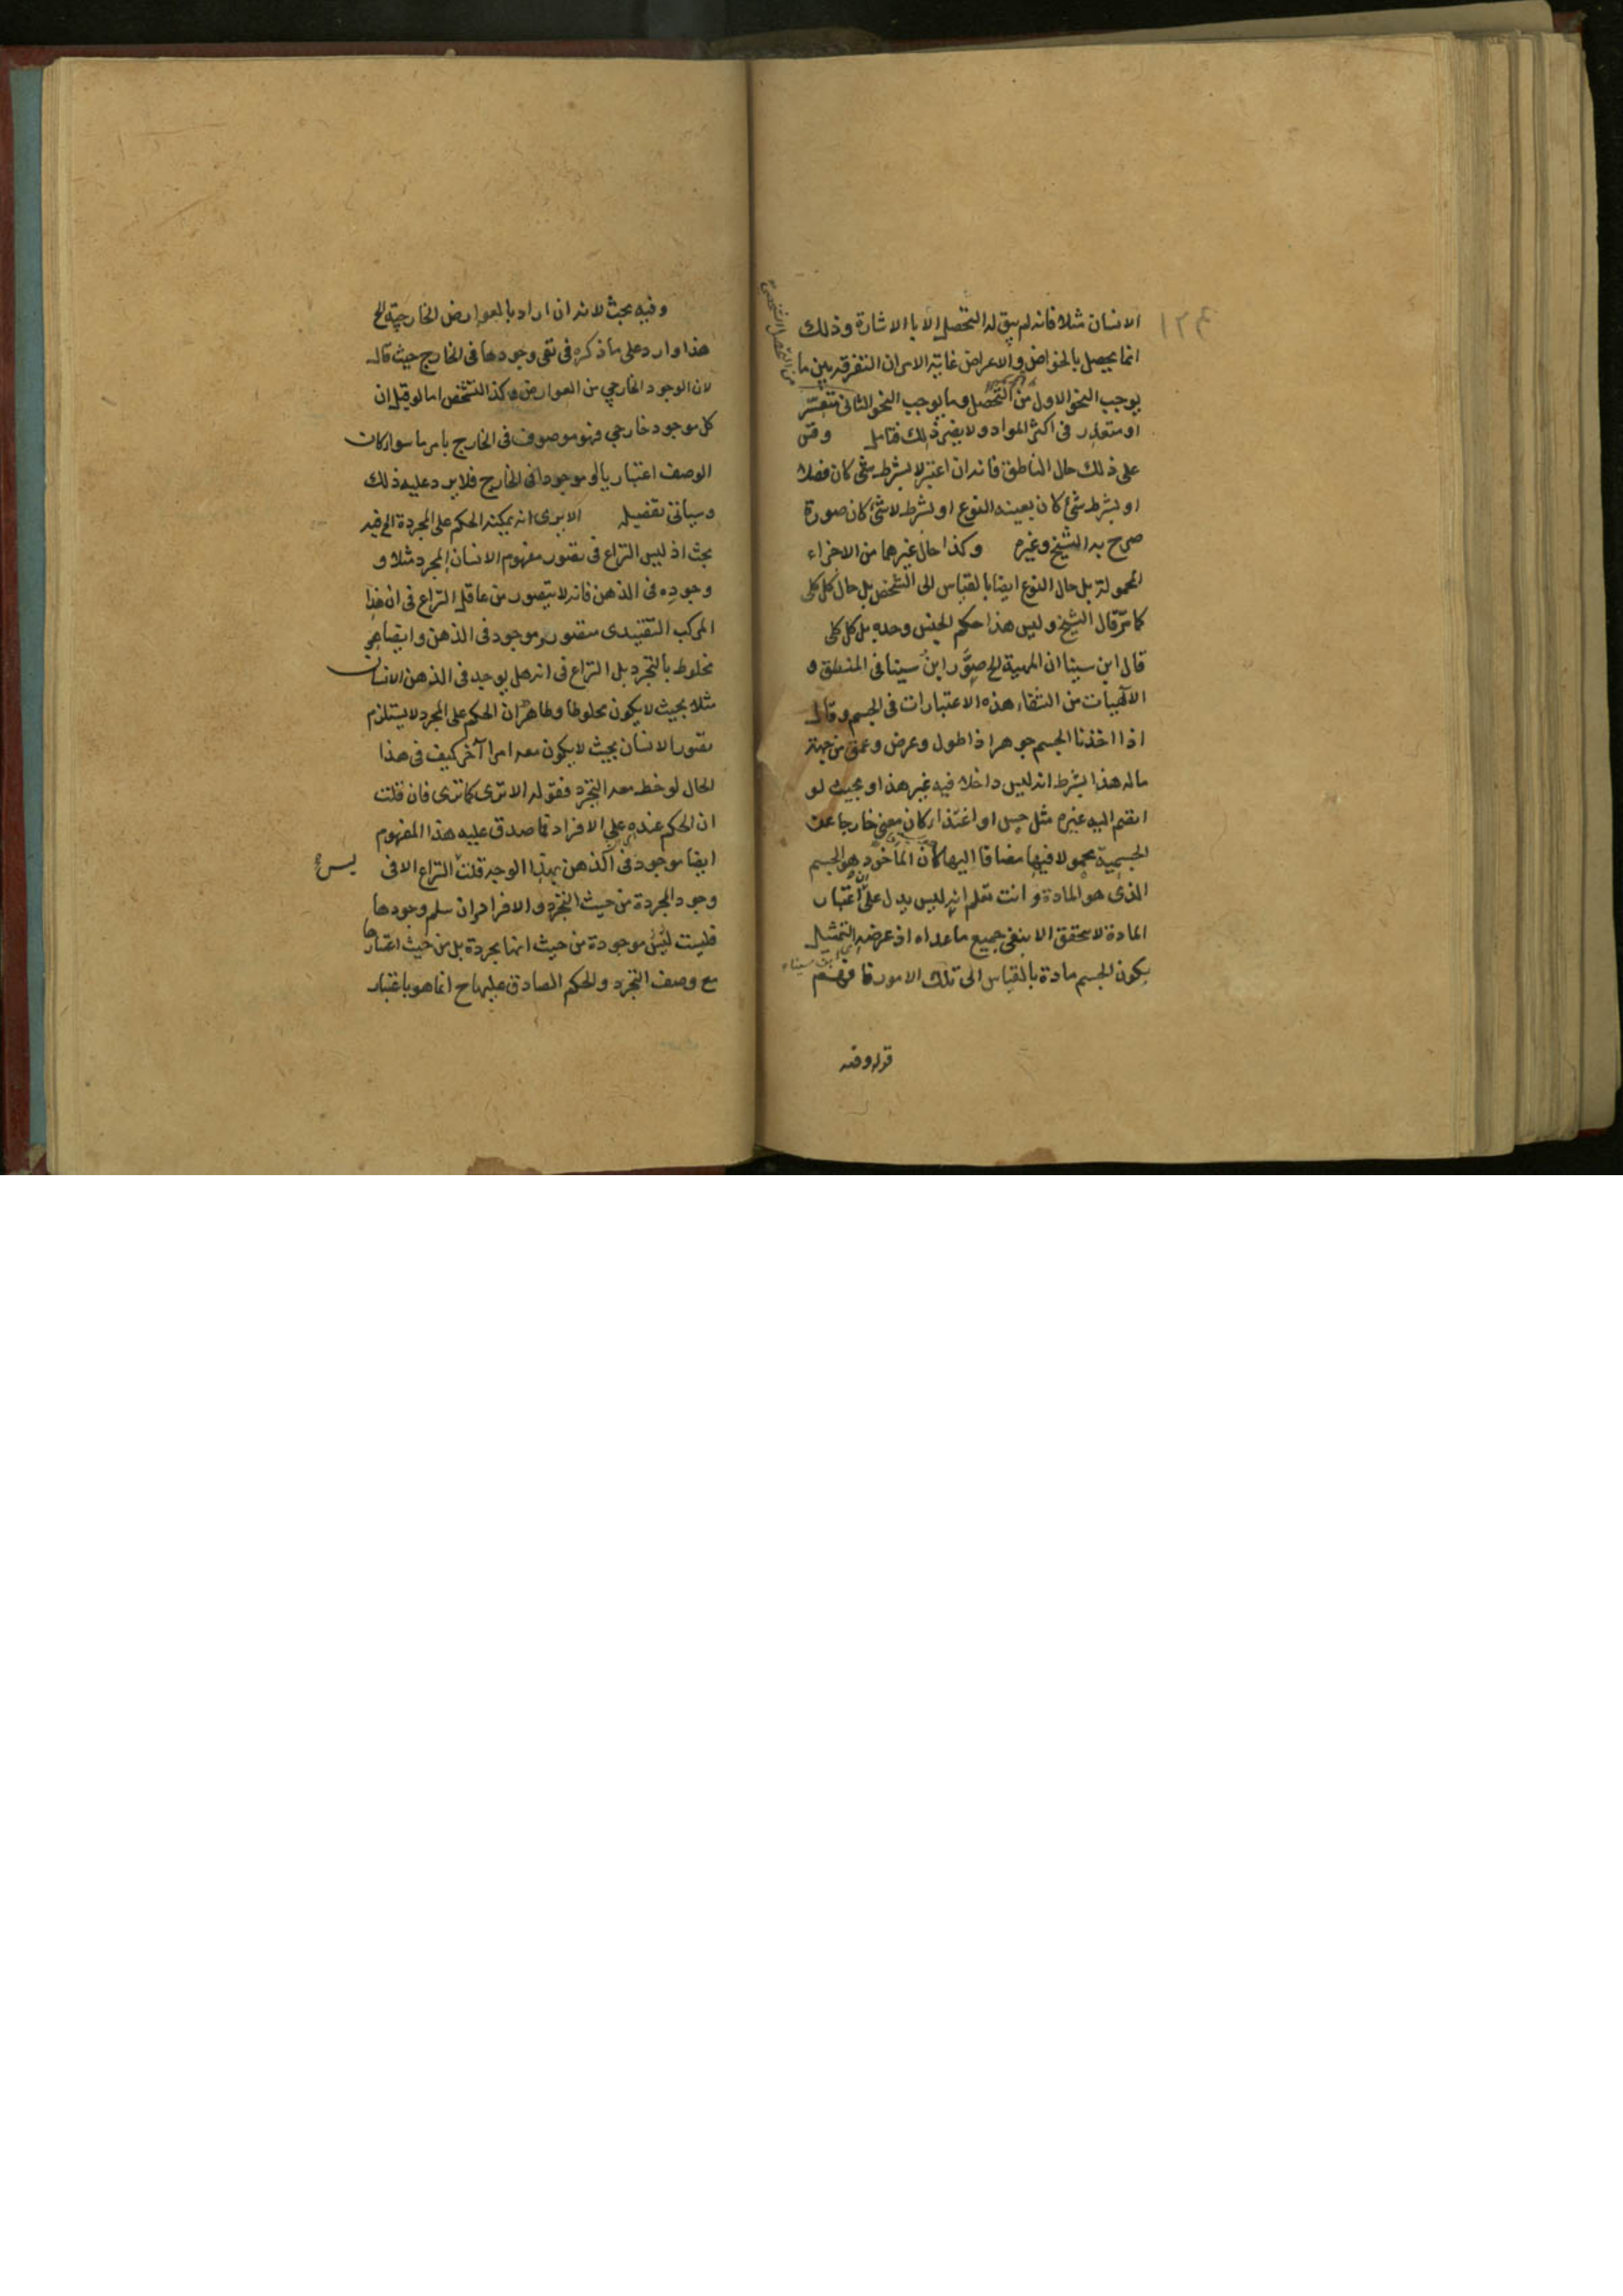 الانسان مثلا فانه لم يبق له التحصل الا بالاشارة وذلك
انما يحصل بالخواص والاعراض غاية الامر ان التفرقة بين ما
يوجب النحو الاول من التحصل وما يوجب النحو الثانى متعسر
او متعذر فى اكثر المواد ولا يضر ذلك فتامل وقس
على ذلك حال الناطق فانه ان اعتبر لا بشرط شئ كان فصلا
او بشرط شئ كان بعينه النوع او بشرط لا شئ كان صورة
صرح به الشيخ وغيره وكذا حال غيرهما من الاجزاء
المحمولة بل حال النوع ايضا بالقياس الى الشخص بل حال كل كلى
كما مر قال الشيخ وليس هذا حكم الجنس وحده بل كل كلى
قال ابن سينا ان المهية الخ صور ابن سينا فى المنطق و
الآلهيات من الشفاء هذه الاعتبارات فى الجسم وقال
اذا اخذنا الجسم جوهرا ذا طول وعرض وعمق من جهة
ماله هذا بشرط انه ليس داخلا فيه غير هذا او بحيث لو
انضم اليه غيره مثل حس او اغتذاء كان معنى خارجا عن
الجسمية محمولا فيها مضافا اليها كان الماخوذ هو الجسم
الذى هو المادة وانت تعلم انه ليس يدل على ان اعتبار
المادة لا يتحقق الا بنفى جميع ما عداه اذ غرضه التمثيل
بكون الجسم مادة بالقياس الى تلك الامور فافهم
من التحصل الشخصى
١٢٤
قوله وفيه
وفيه بحث لانه ان اراد بالعوارض الخارجية الخ
هذا وارد على ما ذكره فى نفى وجودها فى الخارج حيث قال
لان الوجود الخارجى من العوارض وكذا التشخص اما لو قيل ان
كل موجود خارجى فهو موصوف فى الخارج بامر ما سواء كان
الوصف اعتباريا او موجودا فى الخارج فلا يرد عليه ذلك
وسياتى تفصيله الا يرى انه يمكنه الحكم على المجردة الخ فيه
بحث اذ ليس النزاع فى تصور مفهوم الانسان المجرد مثلا و
وجوده فى الذهن فانه لا يتصور من عاقل النزاع فى ان هذا
المركب التقييدى متصور وموجود فى الذهن وايضا هو
مخلوط بالتجرد بل النزاع فى انه هل يوجد فى الذهن الانسان
مثلا بحيث لا يكون مخلوطا وظاهر ان الحكم على المجرد لا يستلزم
تصور الانسان بحيث لا يكون معه امرا آخر كيف فى هذا
الحال لوحظ معه التجرد فقوله الا ترى كما ترى فان قلت
ان الحكم عنده على الافراد فما صدق عليه هذا المفهوم
ايضا موجود فى الذهن بهذا الوجه قلت النزاع الا فى
ليس
وجود المجردة من حيث التجرد والافراد وان سلم وجودها
فليست ليس موجودة من حيث انها مجردة بل من حيث اعتبارها
مع وصف التجرد والحكم الصادق عليها ح انما هو باعتبار